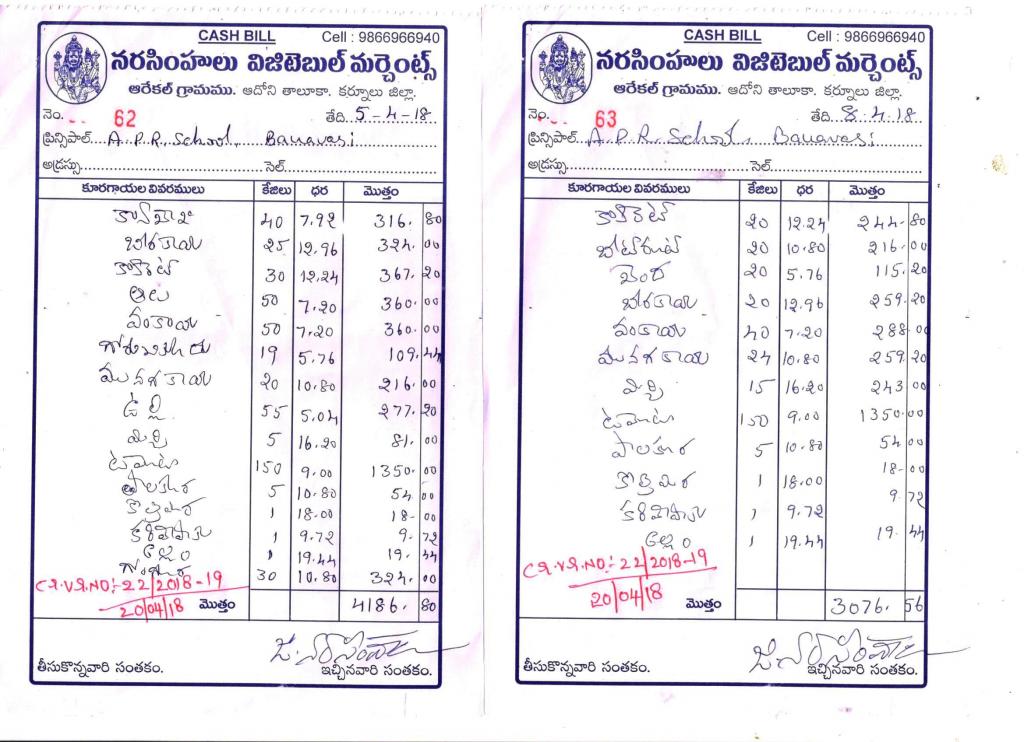 CASH BILL Cell : 9866966940
నరసింహులు విజిటెబుల్ మర్చెంట్స్
ఆరేకల్ గ్రామము. ఆదోని తాలూకా. కర్నూలు జిల్లా.
నెం. 62 తేది. 5-4-18
ప్రిన్సిపాల్ A.P.R. School, Banavasi
అడ్రస్సు సెల్
కూరగాయల వివరములు కేజిలు ధర మొత్తం
40 7.92 316.80
బీరకాయ 25 12.96 324.00
క్యారెట్ 30 12.24 367.20
ఆలు 50 7.20 360.00
వంకాయ 50 7.20 360.00
19 5.76 109.44
మునగకాయ 20 10.80 216.00
ఉల్లి 55 5.04 277.20
మిర్చి 5 16.20 81.00
టమోటా 150 9.00 1350.00
పాలకూర 5 10.80 54.00
కొత్తిమీర 1 18.00 18-00
కరివేపాకు 1 9.72 9.72
అల్లం 1 19.44 19.44
గోంగూర 30 10.80 324.00
C.B.V.B.NO:-22/2018-19
20/04/18 మొత్తం 4186.80
తీసుకొన్నవారి సంతకం. ఇచ్చినవారి సంతకం.
CASH BILL Cell : 9866966940
నరసింహులు విజిటెబుల్ మర్చెంట్స్
ఆరేకల్ గ్రామము. ఆదోని తాలూకా. కర్నూలు జిల్లా.
నెం. 63 తేది. 8.4.18
ప్రిన్సిపాల్ A.P.R. School, Banavasi
అడ్రస్సు సెల్
కూరగాయల వివరములు కేజిలు ధర మొత్తం
క్యారెట్ 20 12.24 244.80
బీట్‌రూట్ 20 10.80 216.00
బెండ 20 5.76 115.20
బీరకాయ 20 12.96 259.20
వంకాయ 40 7.20 288.00
మునగకాయ 24 10.80 259.20
మిర్చి 15 16.20 243.00
టమోటా 150 9.00 1350.00
పాలకూర 5 10.80 54.00
కొత్తిమీర 1 18.00 18-00
కరివేపాకు 1 9.72 9.72
అల్లం 1 19.44 19.44
NO:-22/2018-19
20/04/18 మొత్తం 3076.56
తీసుకొన్నవారి సంతకం. ఇచ్చినవారి సంతకం.